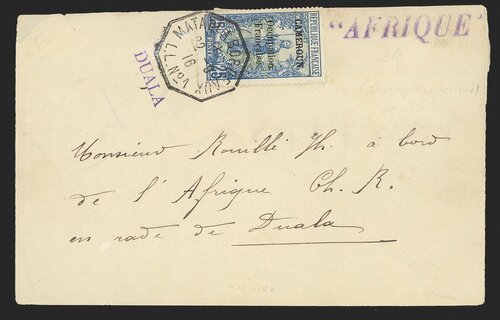 "AFRIQUE"
DUALA
MATADI A BORDEAUX
L.L. Nº
16
CAMEROUN
Occupation
Française
REPUBLIQUE FRANÇAISE
25
Monsieur Rouillé Th. à bord
de l'Afrique Ch. R.
en rade de Duala